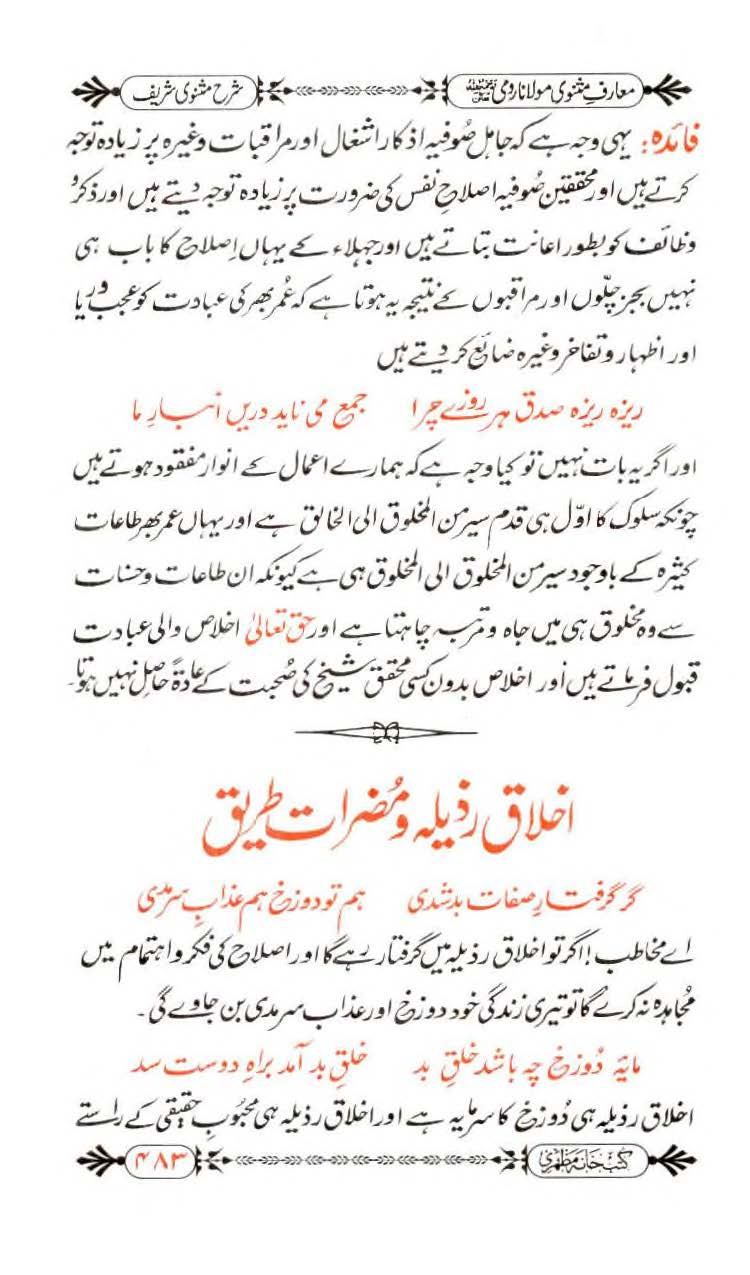 معارفِ مثنوی مولانا رومی رحمۃ اللہ تعالیٰ علیہ
شرح مثنوی شریف
فائدہ: یہی وجہ ہے کہ جاہل صُوفیہ اذکار اشغال اور مراقبات وغیرہ پر زیادہ توجہ
کرتے ہیں اور محققین صُوفیہ اصلاحِ نفس کی ضرورت پر زیادہ توجہ دیتے ہیں اور ذکر و
وظائف کو بطور اعانت بتاتے ہیں اور جہلاء کے یہاں اِصلاح کا باب ہی
نہیں بجز چلّوں اور مراقبوں کے نتیجہ یہ ہوتا ہے کہ عُمر بھر کی عبادت کو عجب و ریا
اور اظہار و تفاخر وغیرہ ضائع کر دیتے ہیں
ریزہ ریزہ صدق ہر روزے چرا جمع می ناید دریں انبارِ ما
اور اگر یہ بات نہیں تو کیا وجہ ہے کہ ہمارے اعمال کے انوار مفقود ہوتے ہیں
چونکہ سلوک کا اوّل ہی قدم سیر من المخلوق الی الخالق ہے اور یہاں عمر بھر طاعات
کثیرہ کے باوجود سیر من المخلوق الی المخلوق ہی ہے کیونکہ ان طاعات و حسنات
سے وہ مخلوق ہی میں جاہ و مرتبہ چاہتا ہے اور حق تعالیٰ اخلاص والی عبادت
قبول فرماتے ہیں اور اخلاص بدون کسی محقق شیخ کی صُحبت کے عادۃً حاصِل نہیں ہوتا۔
اخلاق رذیلہ و مُضرات طریق
گر گرفتارِ صفات بد شدی ہم تو دوزخ ہم عذابِ سرمدی
اے مخاطب! اگر تو اخلاق رذیلہ میں گرفتار رہے گا اور اصلاح کی فکر و اہتمام میں
مُجاہدہ نہ کرے گا تو تیری زندگی خود دوزخ اور عذاب سرمدی بن جاوے گی۔
مایۂ دُوزخ چہ باشد خلقِ بد خلقِ بد آمد براہِ دوست سد
اخلاق رذیلہ ہی دُوزخ کا سرمایہ ہے اور اخلاق رذیلہ ہی محبُوبِ حقیقی کے راستے
کتب خانہ مظہری
۴۸۳